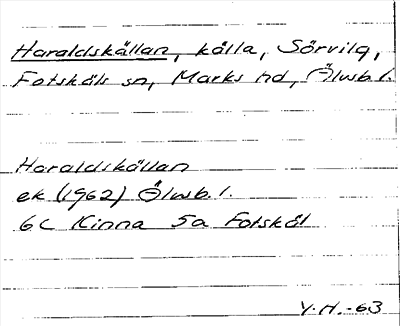 Haraldskällan, källa, Sörvilg,
Fotskäls sn, Marks hd, Älvsb. l.
Haraldskällan
ek (1962) Älvsb. l.
6C Kinna 5a Fotskäl
Y.H.-63